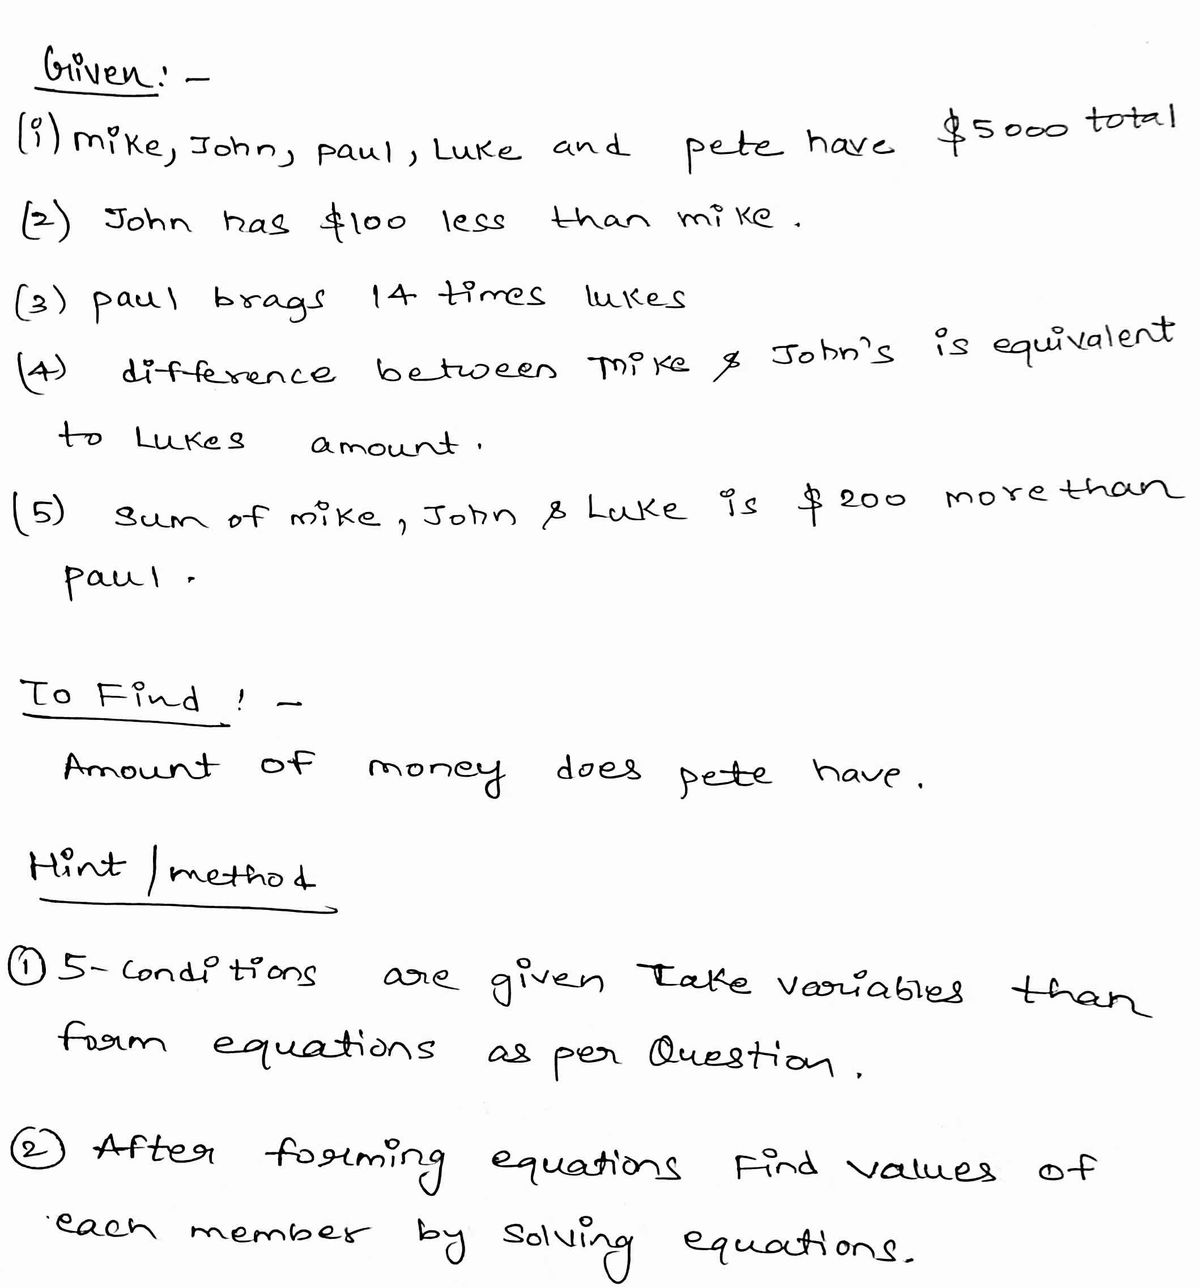 Given: -
(i) mike, John, paul, Luke and pete have $5000 total
(2) John has $100 less than mike.
(3) paul brags 14 times lukes
(4) difference between mike & John's is equivalent
to Lukes amount.
(5) Sum of mike, John & Luke is $200 more than
paul.
To Find ! -
Amount of money does pete have.
Hint / method
① 5-Conditions are given Take variables than
form equations as per Question.
② After forming equations Find values of
each member by solving equations.